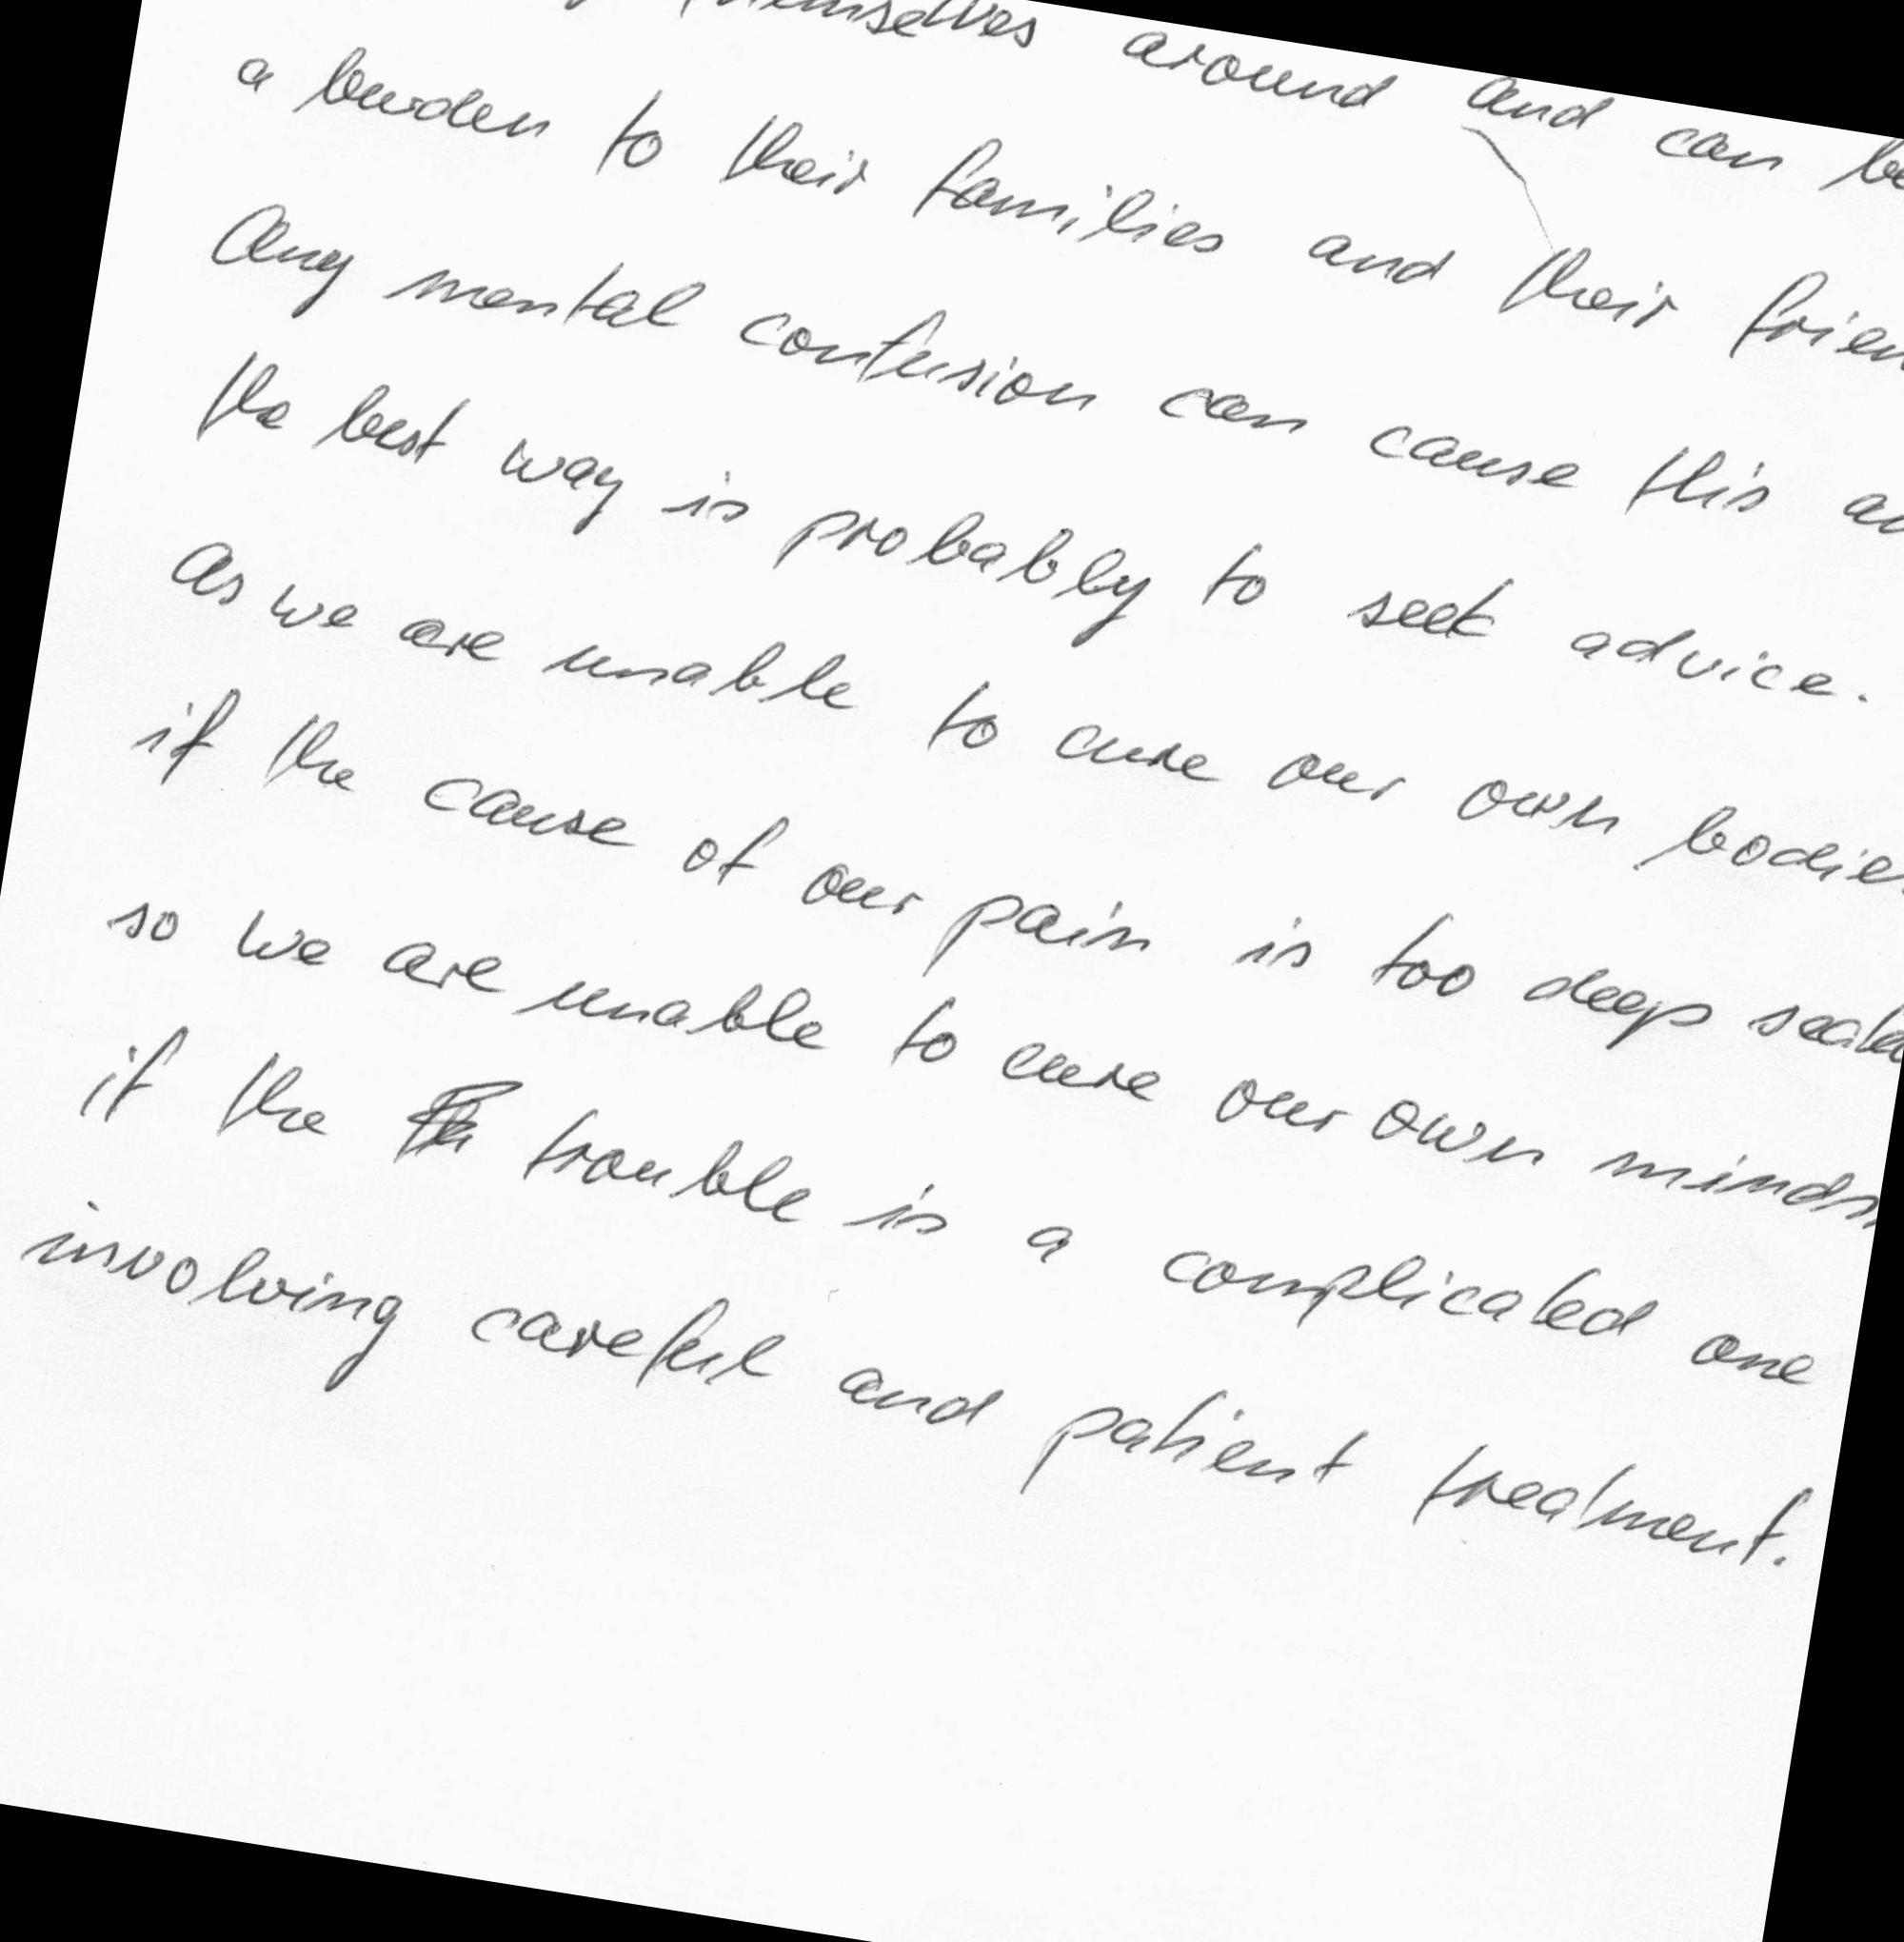 themselves around and can be
a burden to their families and their frien
Any mental confusion can cause this an
the best way is probably to seek advice.
As we are unable to cure our own bodies
if the cause of our pain is too deep seate
so we are unable to cure our own minds,
if the trouble is a complicated one
involving careful and patient treatment.